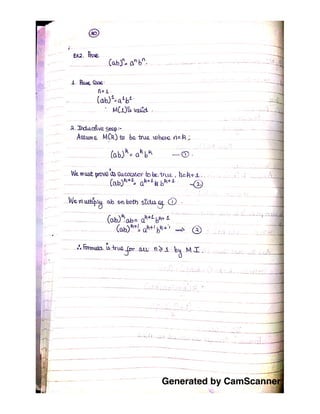 30
Ex2. Prove
(ab)ⁿ = aⁿbⁿ.
1. Base Case:
n=1
(ab)¹ = a¹b¹
M(1) is valid
2. Inductive Step :-
Assume M(k) to be true where n=k.
(ab)ᵏ = aᵏbᵏ — ①
We must prove its successor to be true, n=k+1.
(ab)ᵏ⁺¹ = aᵏ⁺¹ bᵏ⁺¹ — ②
We multiply ab on both sides of ①
(ab)ᵏ ab = aᵏ⁺¹ bᵏ⁺¹
(ab)ᵏ⁺¹ = aᵏ⁺¹ bᵏ⁺¹ → ②
∴ Formula is true for all n≥1 by M.I.
Generated by CamScanner